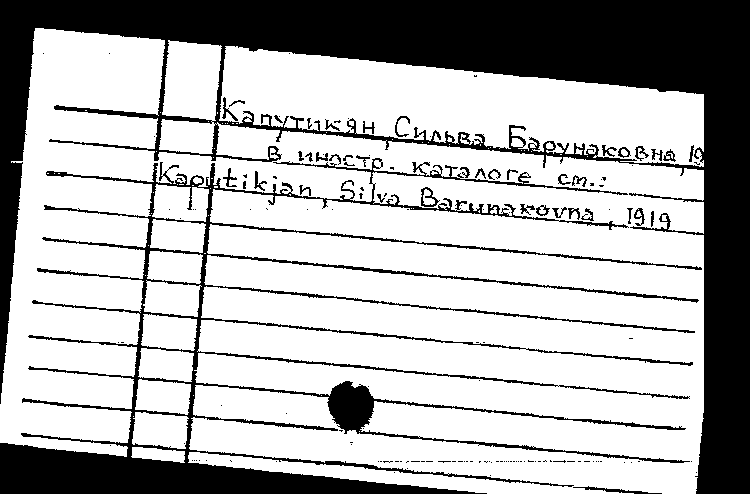 Капутикян, Сильва Барунаковна, 19
в иностр. каталоге см.:
Kaputikjan, Silva Barunakovna, 1919